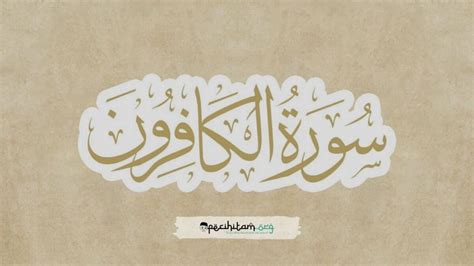 سُورَةُ الكَافِرُونَ
pecihitam.org